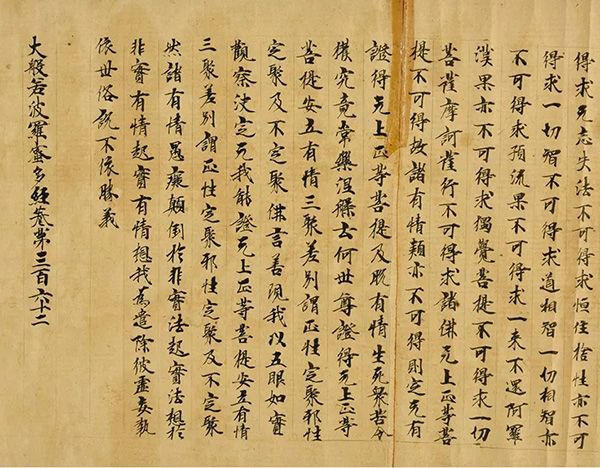 得求无忘失法不可得求恒住捨性亦不可
得求一切智不可得求道相智一切相智亦
不可得求預流果不可得求一来不還阿羅
漢果亦不可得求獨覺菩提不可得求一切
菩薩摩訶薩行不可得求諸佛无上正等菩
提不可得故諸有情類亦不可得則定无有
證得无上正等菩提及脱有情生死衆苦令
獲究竟常樂涅槃云何世尊證得无上正等
菩提安立有情三聚差別謂正性定聚邪性
定聚及不定聚佛言善現我以五眼如實
觀察決定无我能證无上正等菩提安立有情
三聚差別謂正性定聚邪性定聚及不定聚
然諸有情愚癡顛倒於非實法起實法想於
非實有情起實有情想我為遣除彼虛妄執
依世俗說不依勝義
大般若波羅蜜多經卷第三百六十二